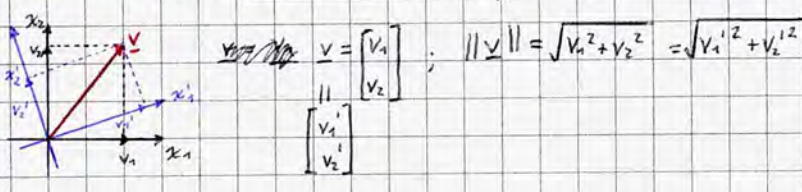 x₂
v₂
v
x₂'
v₂'
x₁'
v₁'
v₁
x₁
v = [v₁ v₂] ; ||v|| = √v₁² + v₂² = √v₁'² + v₂'²
||
[v₁' v₂']